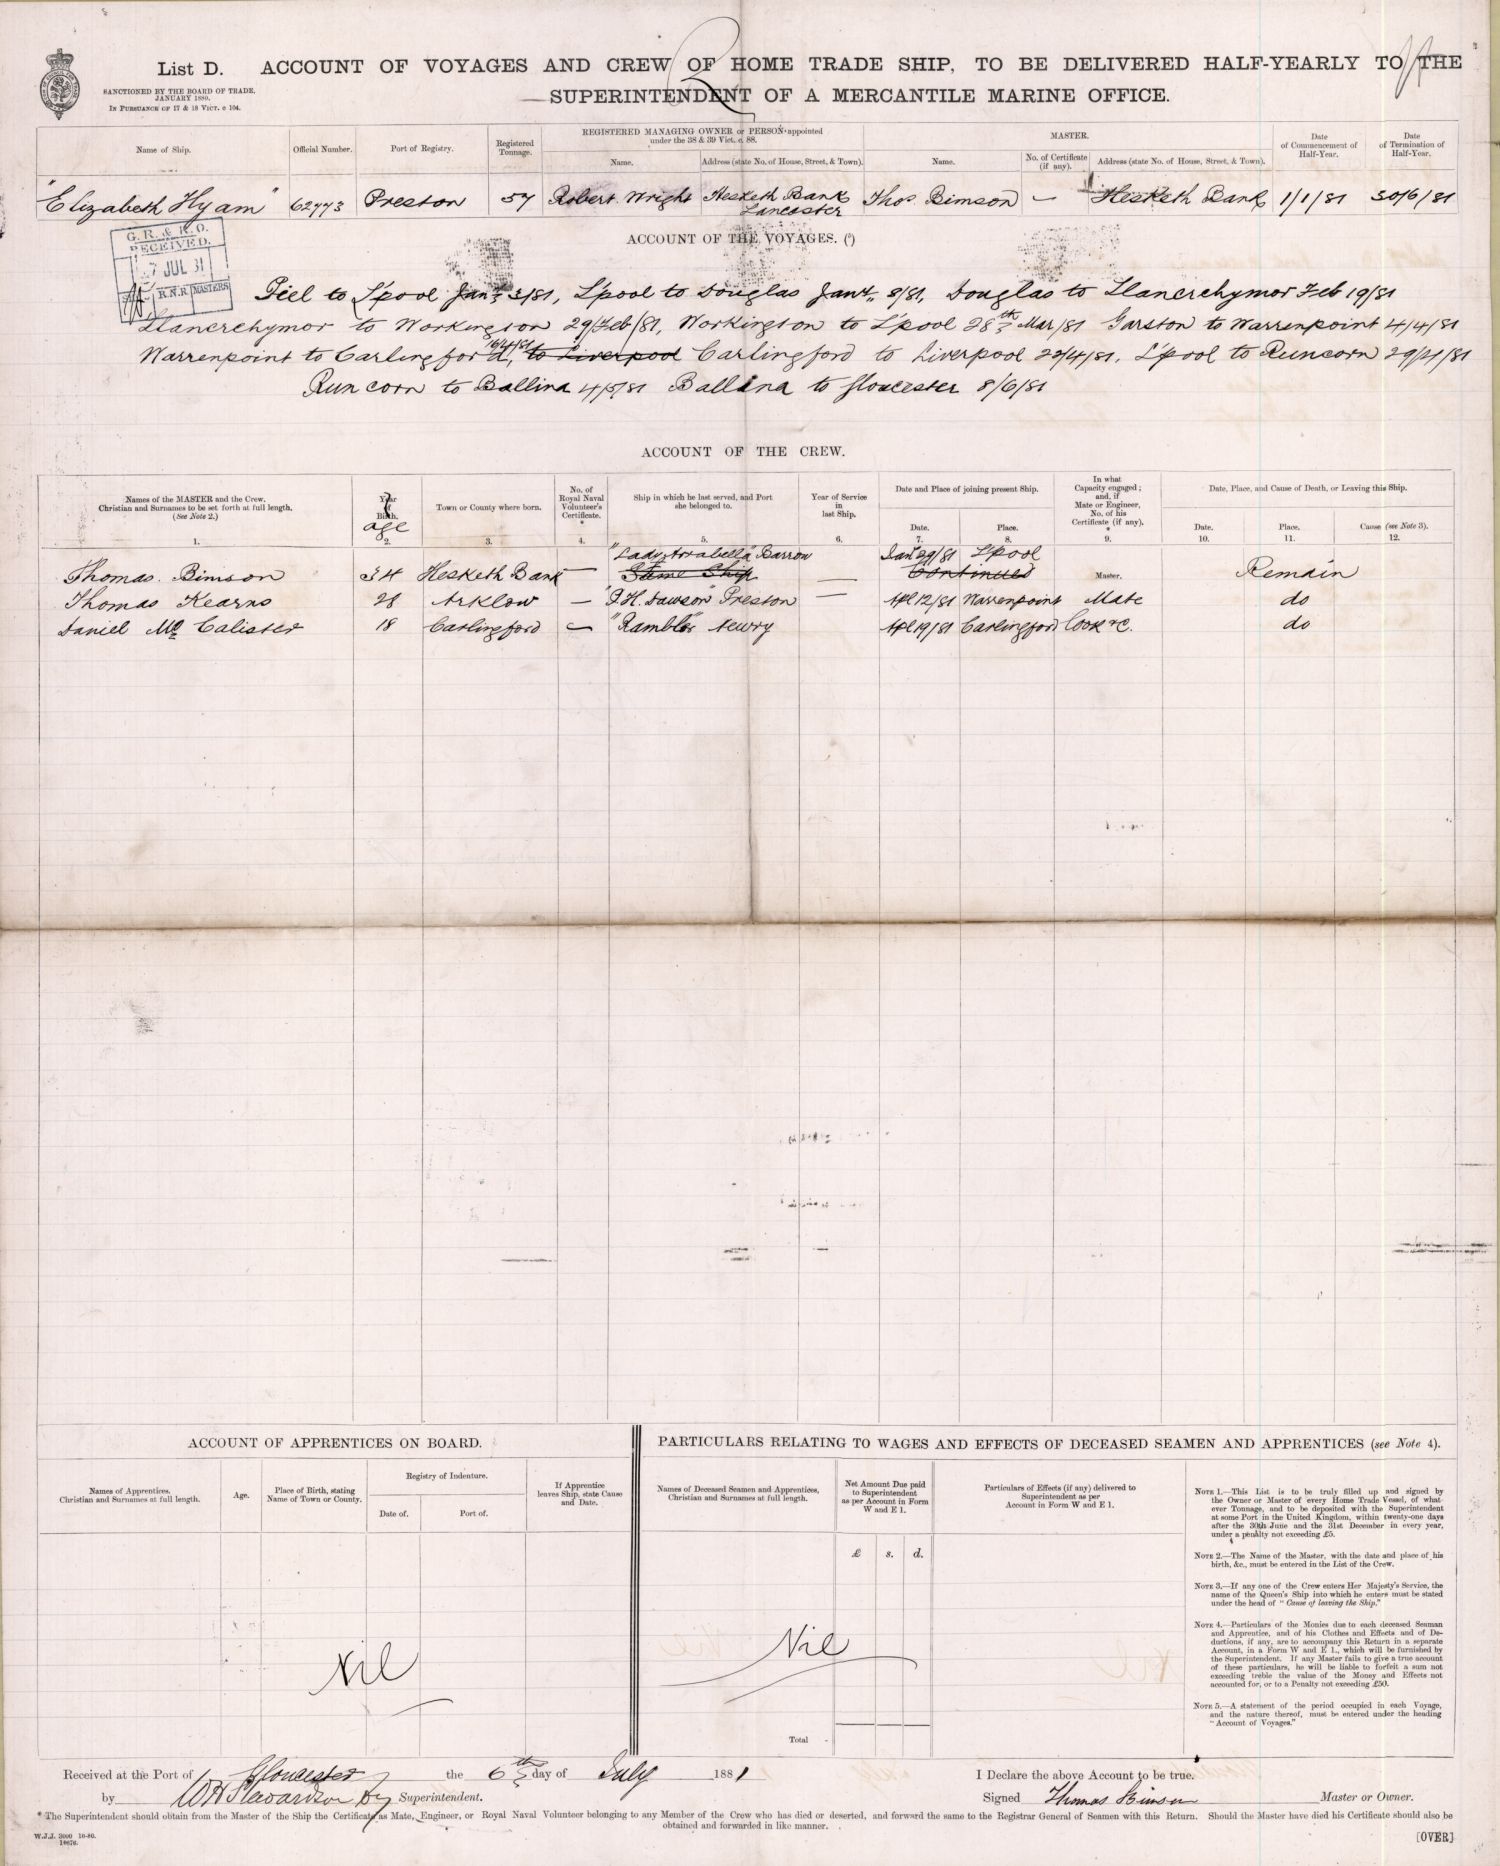 List D. ACCOUNT OF VOYAGES AND CREW OF HOME TRADE SHIP, TO BE DELIVERED HALF-YEARLY TO THE
SUPERINTENDENT OF A MERCANTILE MARINE OFFICE.
SANCTIONED BY THE BOARD OF TRADE,
JANUARY 1880.
IN PURSUANCE OF 17 & 18 VICT. c 104.
REGISTERED MANAGING OWNER or PERSON appointed
under the 38 & 39 Vict. c. 88.
MASTER.
Name of Ship. Official Number. Port of Registry. Registered Tonnage. Name. Address (state No. of House, Street, & Town). Name. No. of Certificate (if any). Address (state No. of House, Street, & Town). Date of Commencement of Half-Year. Date of Termination of Half-Year.
"Elizabeth Hyam" 62773 Preston 57 Robert Wright Hesketh Bank Lancaster Thos. Bimson — Hesketh Bank 1/1/81 30/6/81
G. R. & R. O.
RECEIVED.
7 JUL 81
R.N.R MASTERS
ACCOUNT OF THE VOYAGES. (5)
Piel to L'pool Jany 3/81, L'pool to Douglas Jany 8/81, Douglas to Llanerchymor Feb 19/81
Llanerchymor to Workington 29/Feb/81, Workington to L'pool 28th Mar/81 Garston to Warrenpoint 4/4/81
Warrenpoint to Carlingford, 16/4/81 to Liverpool Carlingford to Liverpool 22/4/81, L'pool to Runcorn 29/4/81
Runcorn to Ballina 4/5/81 Ballina to Gloucester 8/6/81
ACCOUNT OF THE CREW.
Names of the MASTER and the Crew. Christian and Surnames to be set forth at full length. (See Note 2.) Year of Birth. age Town or County where born. No. of Royal Naval Volunteer's Certificate. * Ship in which he last served, and Port she belonged to. Year of Service in last Ship. Date and Place of joining present Ship. In what Capacity engaged; and, if Mate or Engineer, No. of his Certificate (if any). * Date, Place, and Cause of Death, or Leaving this Ship.
Date. Place. Date. Place. Cause (see Note 3).
1. 2. 3. 4. 5. 6. 7. 8. 9. 10. 11. 12.
"Lady Arrabella" Barrow Jany 29/81 L'pool
Thomas Bimson 34 Hesketh Bank — Same Ship — Continued Master. Remain
Thomas Kearns 28 Arklow — "J. H. Dawson" Preston — Apl 12/81 Warrenpoint Mate do
Daniel Mc Calister 18 Carlingford — "Rambler" Newry Apl 19/81 Carlingford Cook &c. do
ACCOUNT OF APPRENTICES ON BOARD.
Names of Apprentices, Christian and Surnames at full length. Age. Place of Birth, stating Name of Town or County. Registry of Indenture. Date of. Port of. If Apprentice leaves Ship, state Cause and Date.
Nil
PARTICULARS RELATING TO WAGES AND EFFECTS OF DECEASED SEAMEN AND APPRENTICES (see Note 4).
Names of Deceased Seamen and Apprentices, Christian and Surnames at full length. Net Amount Due paid to Superintendent as per Account in Form W and E 1. Particulars of Effects (if any) delivered to Superintendent as per Account in Form W and E 1.
£ s. d.
Nil
Total
NOTE 1.—This List is to be truly filled up and signed by
the Owner or Master of every Home Trade Vessel, of what-
ever Tonnage, and to be deposited with the Superintendent
at some Port in the United Kingdom, within twenty-one days
after the 30th June and the 31st December in every year,
under a penalty not exceeding £5.
NOTE 2.—The Name of the Master, with the date and place of his
birth, &c., must be entered in the List of the Crew.
NOTE 3.—If any one of the Crew enters Her Majesty's Service, the
name of the Queen's Ship into which he enters must be stated
under the head of "Cause of leaving the Ship."
NOTE 4.—Particulars of the Monies due to each deceased Seaman
and Apprentice, and of his Clothes and Effects and of De-
ductions, if any, are to accompany this Return in a separate
Account, in a Form W and E 1., which will be furnished by
the Superintendent. If any Master fails to give a true account
of these particulars, he will be liable to forfeit a sum not
exceeding treble the value of the Money and Effects not
accounted for, or to a Penalty not exceeding £50.
NOTE 5.—A statement of the period occupied in each Voyage,
and the nature thereof, must be entered under the heading
"Account of Voyages."
Received at the Port of Gloucester the 6th day of July 1881 I Declare the above Account to be true.
by W H Stewardson Dy Superintendent. Signed Thomas Bimson Master or Owner.
* The Superintendent should obtain from the Master of the Ship the Certificate as Mate, Engineer, or Royal Naval Volunteer belonging to any Member of the Crew who has died or deserted, and forward the same to the Registrar General of Seamen with this Return. Should the Master have died his Certificate should also be
obtained and forwarded in like manner.
W.J.J. 3000 10-80.
[OVER]